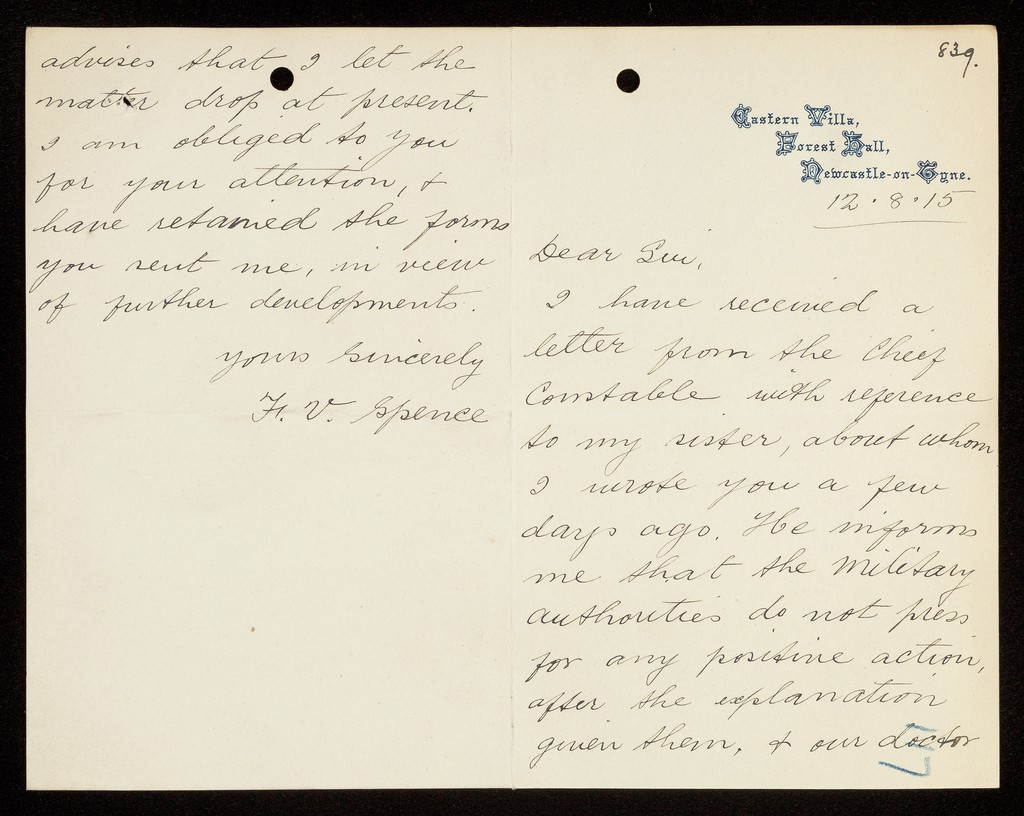 839.
Eastern Villa,
Forest Hall,
Newcastle-on-Tyne.
12.8.15
Dear Sir,
I have received a
letter from the Chief
Constable with reference
to my sister, about whom
I wrote you a few
days ago. He informs
me that the Military
authorities do not press
for any positive action,
after the explanation
given them, & our doctor
advises that I let the
matter drop at present.
I am obliged to you
for your attention, &
have retained the forms
you sent me, in view
of further developments.
Yours Sincerely
F. V. Spence